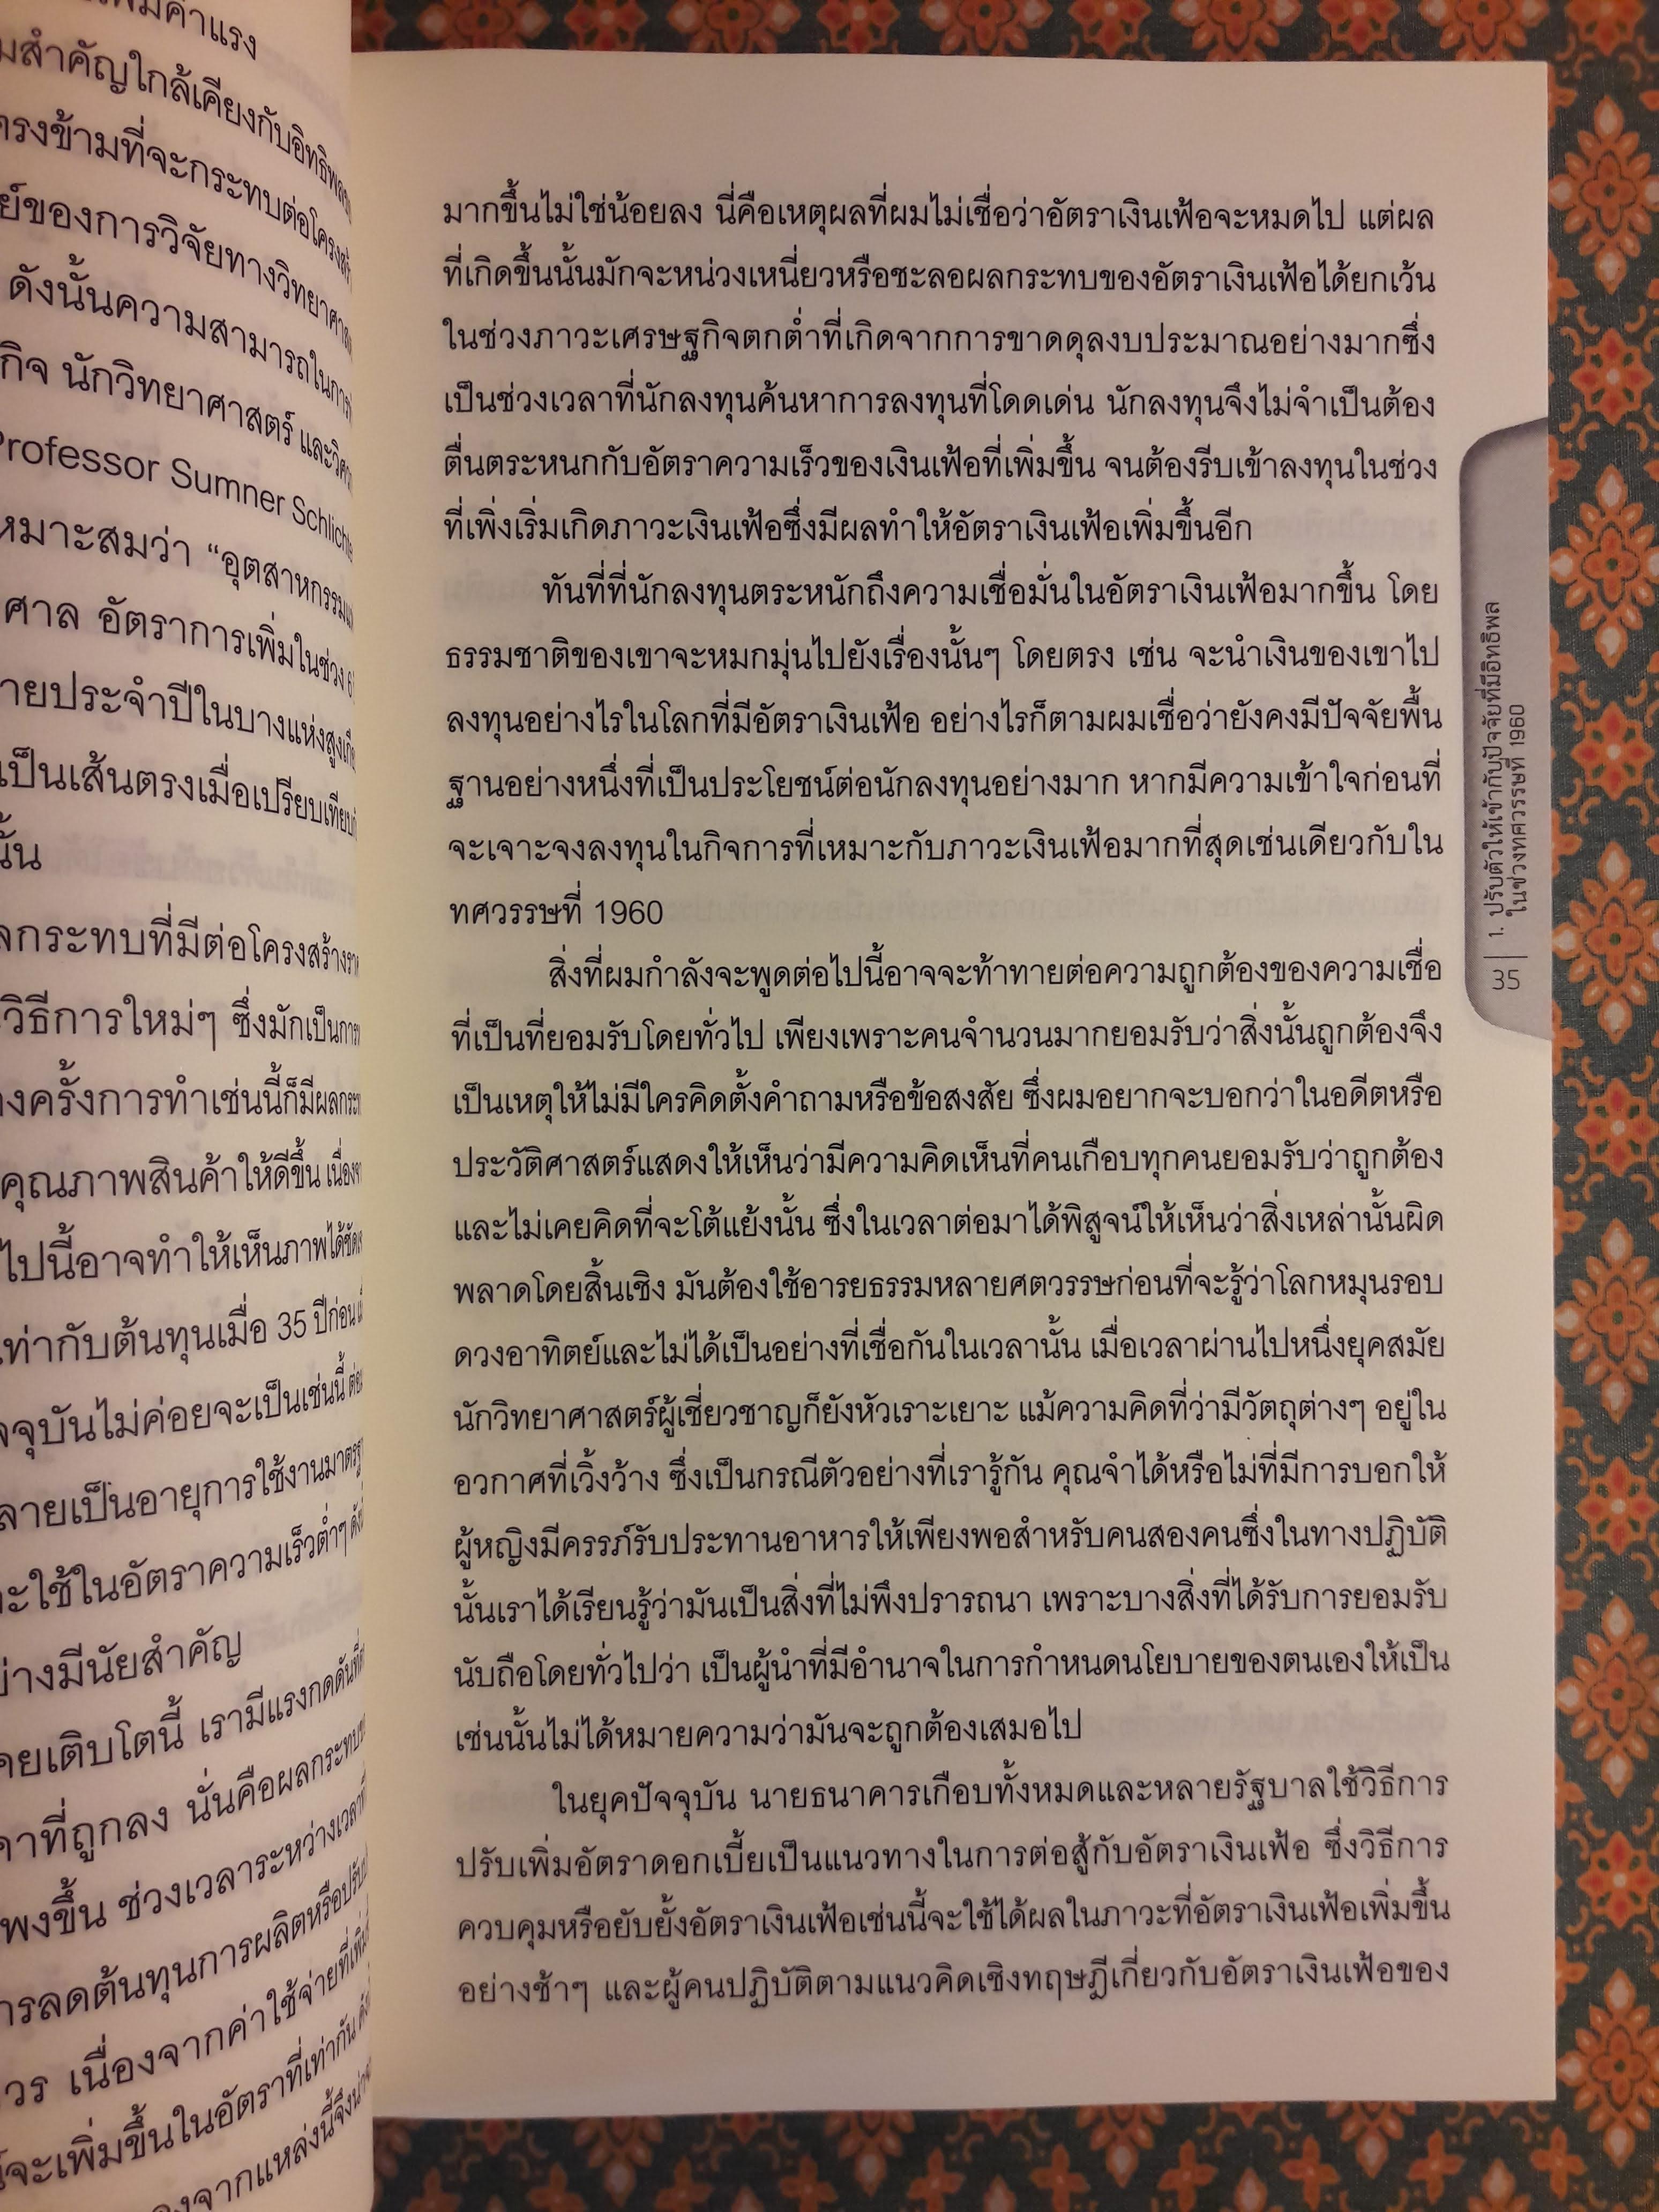 เพิ่มค่าแรง
มสำคัญใกล้เคียงกับอิทธิพลของ
ตรงข้ามที่จะกระทบต่อโครงสร้
ย์ของการวิจัยทางวิทยาศาส
ดังนั้นความสามารถในการ
กิจ นักวิทยาศาสตร์ และวิศว
Professor Sumner Schlichte
หมาะสมว่า “อุตสาหกรรมแ
ศาล อัตราการเพิ่มในช่วง
ายประจำปีในบางแห่งสูงเกิ
เป็นเส้นตรงเมื่อเปรียบเทียบ
นั้น
ลกระทบที่มีต่อโครงสร้างรา
วิธีการใหม่ๆ ซึ่งมักเป็นการ
งครั้งการทำเช่นนี้ก็มีผลกระท
คุณภาพสินค้าให้ดีขึ้น เนื่องจา
ไปนี้อาจทำให้เห็นภาพได้ชัดเจ
เท่ากับต้นทุนเมื่อ 35 ปีก่อน
จจุบันไม่ค่อยจะเป็นเช่นนี้
ลายเป็นอายุการใช้งานมาตรฐา
ะใช้ในอัตราความเร็วต่ำๆ ดังนั้
ย่างมีนัยสำคัญ
ายเติบโตนี้ เรามีแรงกดดันที่
าคาที่ถูกลง นั่นคือผลกระทบข
พงขึ้น ช่วงเวลาระหว่างเวลาที่
ารลดต้นทุนการผลิตหรือปรับป
วร เนื่องจากค่าใช้จ่ายที่เพิ่มขึ้
์จะเพิ่มขึ้นในอัตราที่เท่ากัน ดังนั้
งจากแหล่งนี้จึงน่าจ
มากขึ้นไม่ใช่น้อยลง นี่คือเหตุผลที่ผมไม่เชื่อว่าอัตราเงินเฟ้อจะหมดไป แต่ผล
ที่เกิดขึ้นนั้นมักจะหน่วงเหนี่ยวหรือชะลอผลกระทบของอัตราเงินเฟ้อได้ยกเว้น
ในช่วงภาวะเศรษฐกิจตกต่ำที่เกิดจากการขาดดุลงบประมาณอย่างมากซึ่ง
เป็นช่วงเวลาที่นักลงทุนค้นหาการลงทุนที่โดดเด่น นักลงทุนจึงไม่จำเป็นต้อง
ตื่นตระหนกกับอัตราความเร็วของเงินเฟ้อที่เพิ่มขึ้น จนต้องรีบเข้าลงทุนในช่วง
ที่เพิ่งเริ่มเกิดภาวะเงินเฟ้อซึ่งมีผลทำให้อัตราเงินเฟ้อเพิ่มขึ้นอีก
ทันที่ที่นักลงทุนตระหนักถึงความเชื่อมั่นในอัตราเงินเฟ้อมากขึ้น โดย
ธรรมชาติของเขาจะหมกมุ่นไปยังเรื่องนั้นๆ โดยตรง เช่น จะนำเงินของเขาไป
ลงทุนอย่างไรในโลกที่มีอัตราเงินเฟ้อ อย่างไรก็ตามผมเชื่อว่ายังคงมีปัจจัยพื้น
ฐานอย่างหนึ่งที่เป็นประโยชน์ต่อนักลงทุนอย่างมาก หากมีความเข้าใจก่อนที่
จะเจาะจงลงทุนในกิจการที่เหมาะกับภาวะเงินเฟ้อมากที่สุดเช่นเดียวกับใน
ทศวรรษที่ 1960
สิ่งที่ผมกำลังจะพูดต่อไปนี้อาจจะท้าทายต่อความถูกต้องของความเชื่อ
ที่เป็นที่ยอมรับโดยทั่วไป เพียงเพราะคนจำนวนมากยอมรับว่าสิ่งนั้นถูกต้องจึง
เป็นเหตุให้ไม่มีใครคิดตั้งคำถามหรือข้อสงสัย ซึ่งผมอยากจะบอกว่าในอดีตหรือ
ประวัติศาสตร์แสดงให้เห็นว่ามีความคิดเห็นที่คนเกือบทุกคนยอมรับว่าถูกต้อง
และไม่เคยคิดที่จะโต้แย้งนั้น ซึ่งในเวลาต่อมาได้พิสูจน์ให้เห็นว่าสิ่งเหล่านั้นผิด
พลาดโดยสิ้นเชิง มันต้องใช้อารยธรรมหลายศตวรรษก่อนที่จะรู้ว่าโลกหมุนรอบ
ดวงอาทิตย์และไม่ได้เป็นอย่างที่เชื่อกันในเวลานั้น เมื่อเวลาผ่านไปหนึ่งยุคสมัย
นักวิทยาศาสตร์ผู้เชี่ยวชาญก็ยังหัวเราะเยาะ แม้ความคิดที่ว่ามีวัตถุต่างๆ อยู่ใน
อวกาศที่เวิ้งว้าง ซึ่งเป็นกรณีตัวอย่างที่เรารู้กัน คุณจำได้หรือไม่ที่มีการบอกให้
ผู้หญิงมีครรภ์รับประทานอาหารให้เพียงพอสำหรับคนสองคนซึ่งในทางปฏิบัติ
นั้นเราได้เรียนรู้ว่ามันเป็นสิ่งที่ไม่พึงปรารถนา เพราะบางสิ่งที่ได้รับการยอมรับ
นับถือโดยทั่วไปว่า เป็นผู้นำที่มีอำนาจในการกำหนดนโยบายของตนเองให้เป็น
เช่นนั้นไม่ได้หมายความว่ามันจะถูกต้องเสมอไป
ในยุคปัจจุบัน นายธนาคารเกือบทั้งหมดและหลายรัฐบาลใช้วิธีการ
ปรับเพิ่มอัตราดอกเบี้ยเป็นแนวทางในการต่อสู้กับอัตราเงินเฟ้อ ซึ่งวิธีการ
ควบคุมหรือยับยั้งอัตราเงินเฟ้อเช่นนี้จะใช้ได้ผลในภาวะที่อัตราเงินเฟ้อเพิ่มขึ้น
อย่างช้าๆ และผู้คนปฏิบัติตามแนวคิดเชิงทฤษฎีเกี่ยวกับอัตราเงินเฟ้อของ
1. ปรับตัวให้เข้ากับปัจจัยที่มีอิทธิพล
ในช่วงทศวรรษที่ 1960
35